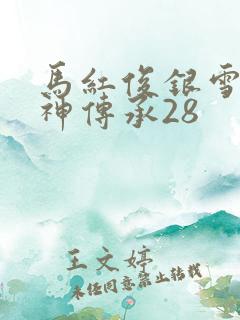 馬紅俊銀雪
神傳承28
王文婷
未經同意禁止轉載